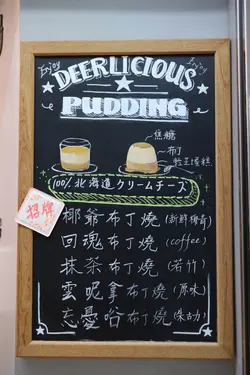 Enjoy Enjoy
DEERLICIOUS
PUDDING
焦糖
布丁
100%北海道クリームチーズ
招牌
椰爺布丁燒(新鮮椰香)
回魂布丁燒(coffee)
抹茶布丁燒(若竹)
雲昵拿布丁燒(原味)
忘憂唂布丁燒(朱古力)